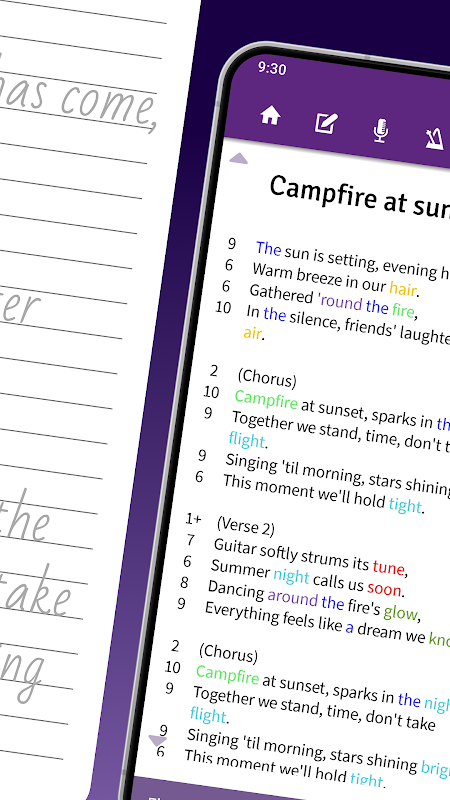 has come,
the
take
9:30
Campfire at
9 The sun is setting, evening
6 Warm breeze in our hair.
6 Gathered 'round the fire,
10 In the silence, friends' laughte
air.
2 (Chorus)
10 Campfire at sunset, sparks in
9 Together we stand, time, don't
flight.
9 Singing 'til morning, stars shining
6 This moment we'll hold tight.
1+ (Verse 2)
7 Guitar softly strums its tune,
6 Summer night calls us soon.
8 Dancing around the fire's glow,
9 Everything feels like a dream we
2 (Chorus)
10 Campfire at sunset, sparks in the
9 Together we stand, time, don't take
flight.
9 Singing 'til morning, stars shining
6 This moment we'll hold tight.